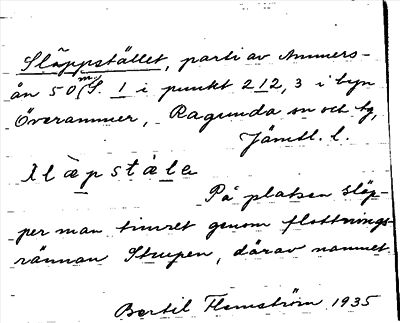 Släppstället, parti av Ammers-
ån 50 m S. 1 i punkt 212,3 i byn
Överammer, Ragunda sn och tg,
Jämtl. l.
På platsen släp-
per man timret genom flottnings-
rännan Strupen, därav namnet.
Bertil Flemström 1935